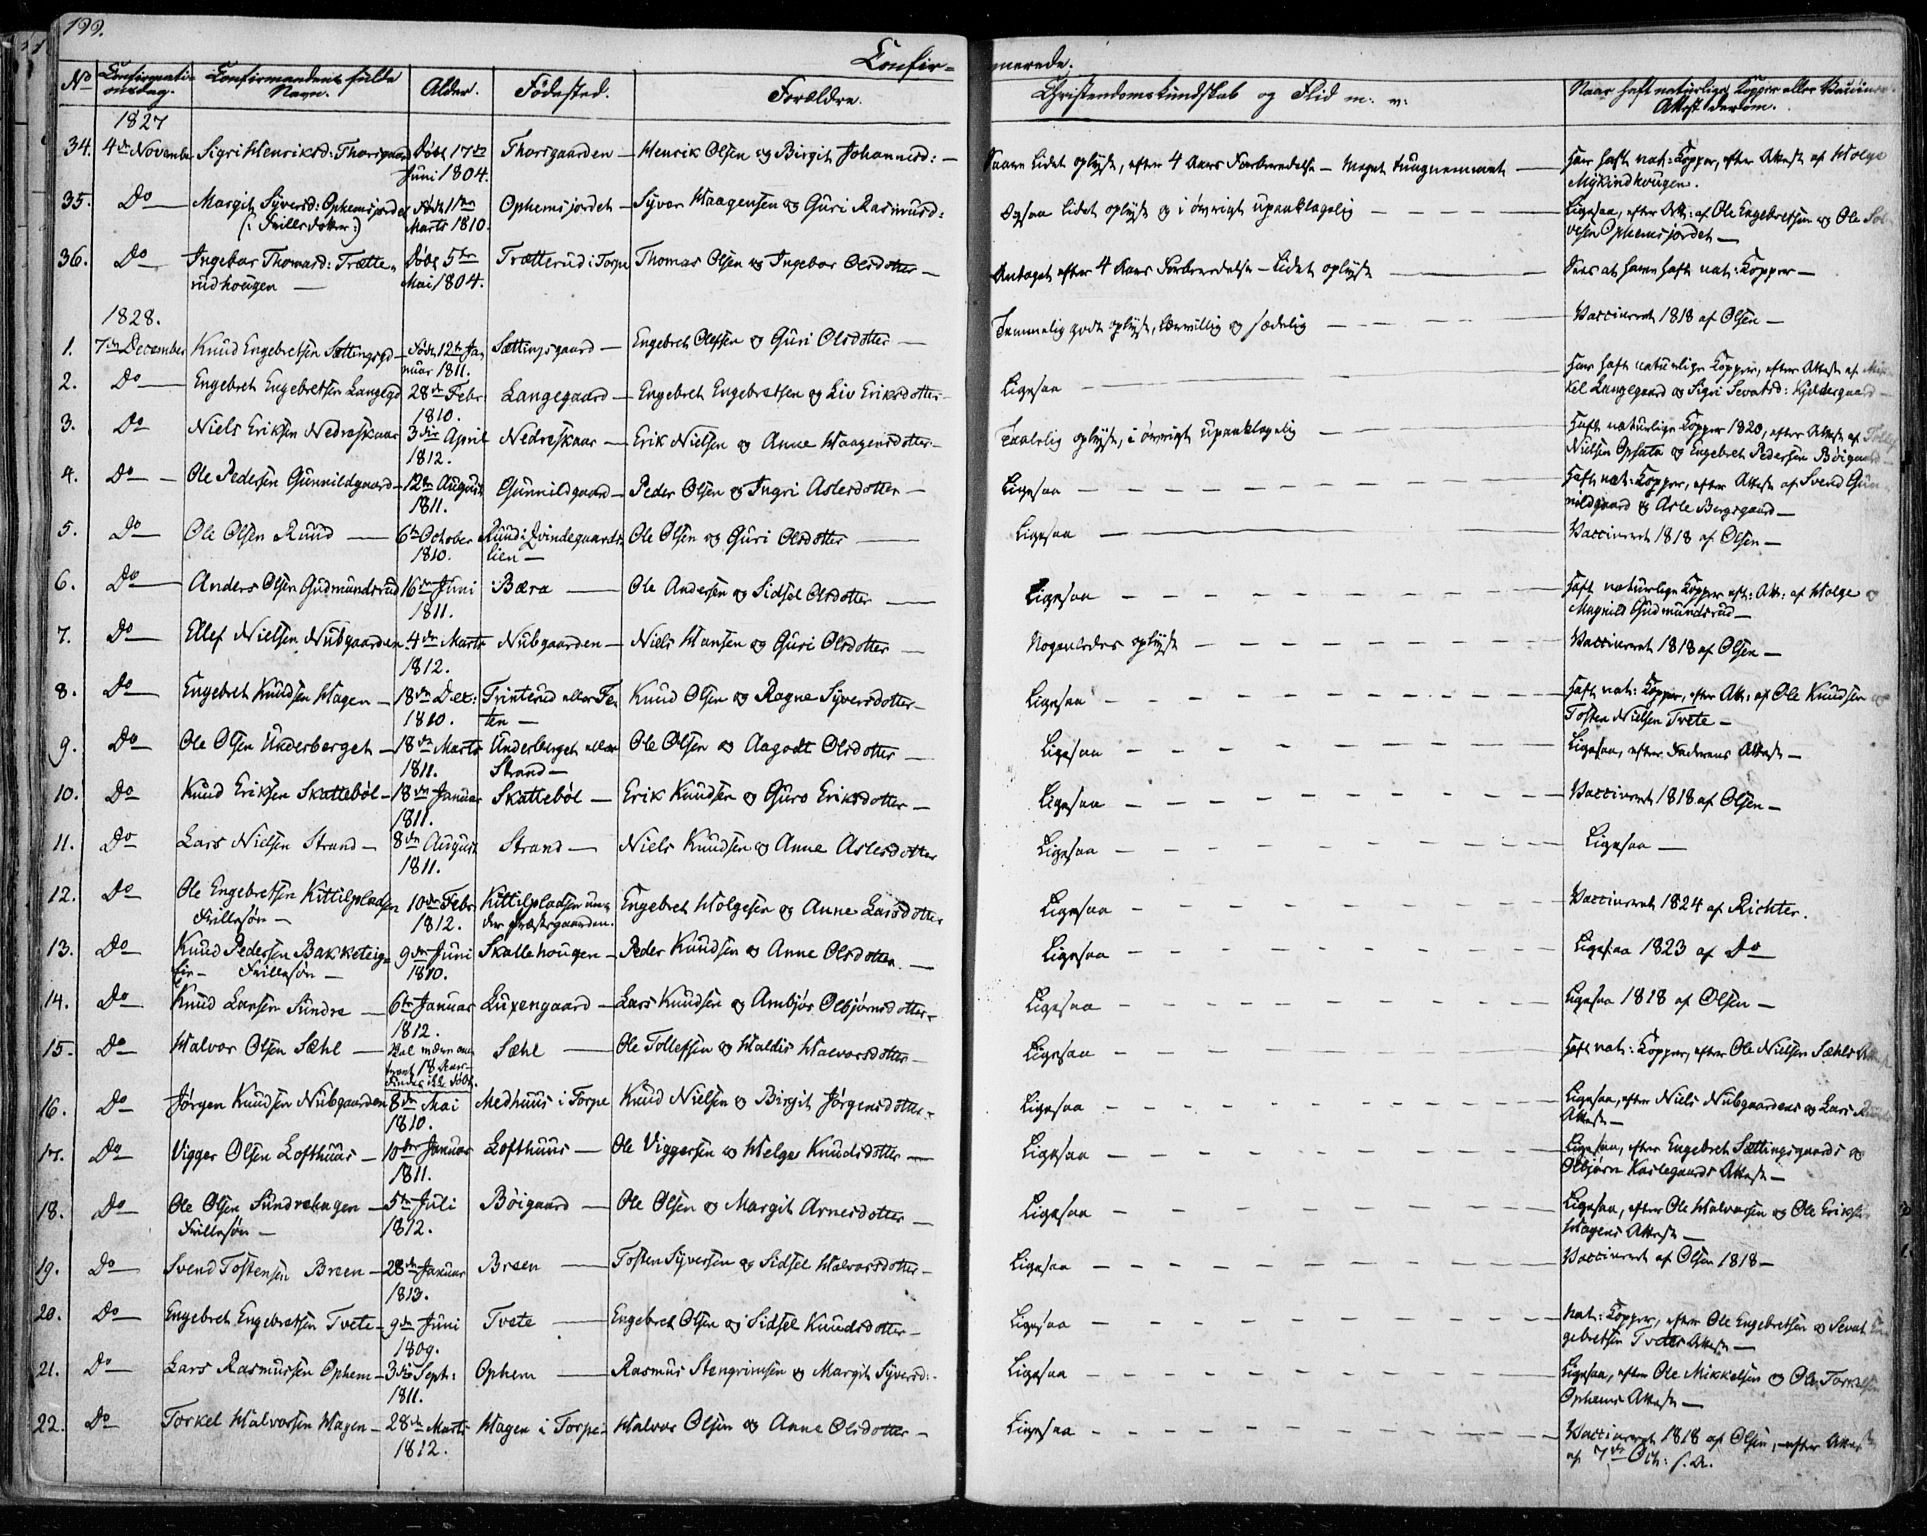 199.
Confir-
merede.
No
Confirmati-
onsdag.
Confirmandens fulde
Navn.
Alder.
Fødested.
Forældre.
Christendomskundskab og Flid m: v:
Naar haft naturlige Kopper eller Vaccineret.
Attest derom.
1827
34. 4de November Sigri Henriksd: Thorsgaard Døbt 17de Thorsgaarden — Henrik Olsen og Birgit Johannesd: — Saare lidet oplyst, efter 4 Aars Forberedelse — Meget tungnemmet — Har haft nat: Kopper, efter Attest af Holge
Juni 1804.
Myking Hougen.
35. Do — Margit Syversd: Ophemsjordet Født 1ste Ophemsjordet — Syver Haagensen og Guri Rasmusd: Ogsaa lidet oplyst og i øvrigt upaaklagelig — Ligesaa, efter Att: af Ole Engebretsen og Ole
(: Frillesdatter :) Marts 1810.
Ophemsjordet —
36. Do Ingebor Thomasd: Trætte- Døbt 5te Trætterud i Torpe Thomas Olsen og Ingebor Olsdotter — Antaget efter 4 Aars Forberedelse — Lidet oplyst — Sees at have haft nat: Kopper —
rudhougen — Mai 1804.
1828.
1. 7de December Knud Engebretsen Sættingsgd — Født 12te Ja- Sættingsgaard — Engebret Olefsen og Guri Olsdotter — Temmelig godt oplyst, lærvillig og sædelig — Vaccineret 1818 af Olsen —
nuar 1811.
2. Do — Engebret Engebretsen Langegd 28de Febr. Langegaard — Engebret Engebretsen og Liv Eriksdotter — Ligesaa — Har haft naturlige Kopper, efter Attest af Mik-
1810.
kel Langegaard og Sigri Sevatsd: Kjeldergaard —
3. Do Niels Eriksen Nedreskaar 3die April Nedreskaar — Erik Nielsen og Anne Haagensdotter — Taalelig oplyst, i øvrigt upaaklagelig — Haft naturlige Kopper 1820, efter Attest af Tollef
1812.
Nielsen Opsata og Engebret Pedersen Bøigaard —
4. Do — Ole Pedersen Gunnildgaard — 12te August Gunnildgaard — Peder Olsen og Ingri Aslesdotter — Ligesaa — Haft nat: Kopper, efter Attest af Svend Gun-
1811.
nildgaard og Asle Bergsgaard —
5. Do Ole Olsen Ruud — 6te October Ruud i Qvindegaards- Ole Olsen og Guri Olsdotter — Ligesaa — Vaccineret 1818 af Olsen —
1810. lien —
6. Do — Anders Olsen Gudmundsrud 16de Juni Bæra — Ole Andersen og Sidsel Olsdotter — Ligesaa — Haft naturlige Kopper eft: Att: af Holge og
1811.
Magnild Gudmundsrud —
7. Do — Ellef Nielsen Nubgaarden 4de Marts Nubgaarden — Niels Hansen og Guri Olsdotter — Nogenledes oplyst — Vaccineret 1818 af Olsen —
1812.
8. Do — Engebret Knudsen Hagen — 18de Dec: Trinterud eller Fe- Knud Olsen og Ragne Syversdotter — Ligesaa — Haft nat: Kopper, efter Att: af Ole Knudsen og
1810. ten —
Tosten Nielsen Tvete —
9. Do — Ole Olsen Underberget — 18de Marts Underberget eller Ole Olsen og Aagodt Olsdotter — Ligesaa — Ligesaa, efter Faderens Attest —
1811. Strand —
10. Do Knud Eriksen Skattebøl — 18de Januar Skattebøl — Erik Knudsen og Guro Eriksdotter — Ligesaa — Vaccineret 1818 af Olsen —
1811.
11. Do Lars Nielsen Strand — 8de August Strand — Niels Knudsen og Anne Aslesdotter Ligesaa — Ligesaa —
1811.
12. Do — Ole Engebretsen Kittilpladsen 10de Febr. Kittilpladsen un- Engebret Holgesen og Anne Larsdotter Ligesaa — Vaccineret 1824 af Richter.
Frillesøn — 1812. der Præstegaarden.
13. Do Knud Pedersen Bakketeig- 9de Juni Skallehougen — Peder Knudsen og Anne Olsdotter — Ligesaa — Ligesaa 1823 af Do —
Frillesøn — 1810.
14. Do Knud Larsen Sundre — 6te Januar Luxengaard — Lars Knudsen og Ambjør Olbjørnsdotter — Ligesaa — Ligesaa 1818 af Olsen —
1812.
15. Do Halvor Olsen Sæhl — Sæhl — Ole Tollefsen og Haldis Halvorsdotter — Ligesaa — Haft nat: Kopper, efter Ole Nielsen Sæhls Attest
18 Aar —
Findes ikke døbt.
16. Do Jørgen Knudsen Nubgaarden 8de Mai Medhuus i Torpe Knud Nielsen og Birgit Jørgensdotter — Ligesaa — Ligesaa, efter Niels Nubgaardens og Lars
1810.
Attest —
17. Do Vigger Olsen Lofthuus — 10de Januar Lofthuus — Ole Viggersen og Helge Knudsdotter — Ligesaa — Ligesaa, efter Engebret Sættingsgaards og
1811.
Olbjørn Karlegaards Attest —
18. Do Ole Olsen Sundrehagen — 5te Juli Bøigaard — Ole Olsen og Margit Arnesdotter — Ligesaa — Ligesaa, efter Ole Halvorsen og Ole Eriksen
Frillesøn — 1812.
Hagens Attest —
19. Do — Svend Tostensen Breen — 28de Januar Breen — Tosten Syversen og Sidsel Halvorsdotter — Ligesaa — Vaccineret af Olsen 1818 —
1813.
20. Do — Engebret Engebretsen Tvete — 9de Juni Tvete — Engebret Olsen og Sidsel Knudsdotter — Ligesaa — Nat: Kopper, efter Ole Engebretsen og Sevat En-
1809.
gebretsen Tvetes Attest —
21. Do Lars Rasmussen Ophem — 3die Sept: Ophem — Rasmus Stengrimsen og Margit Syversd: — Ligesaa — Ligesaa, efter Ole Mikkelsen og Ole Torkelsen
1811.
Ophems Attest —
22. Do Torkel Halvorsen Hagen — 28de Marts Hagen i Torpe — Halvor Olsen og Anne Olsdotter — Ligesaa — Vaccineret 1818 af Olsen, efter Attest
1812.
af 7de Oct: s. A.